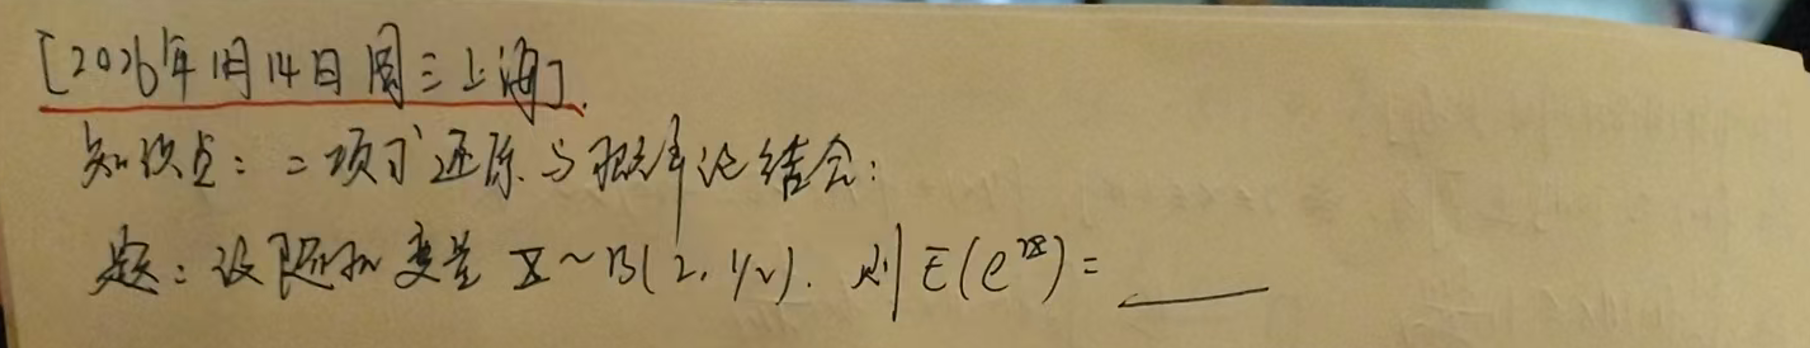 [2026年1月14日周三上海].
知识点：二项式还原与概率论结合：
题：设随机变量 X~B(2, 1/2). 则 E(e^{2X}) = ____